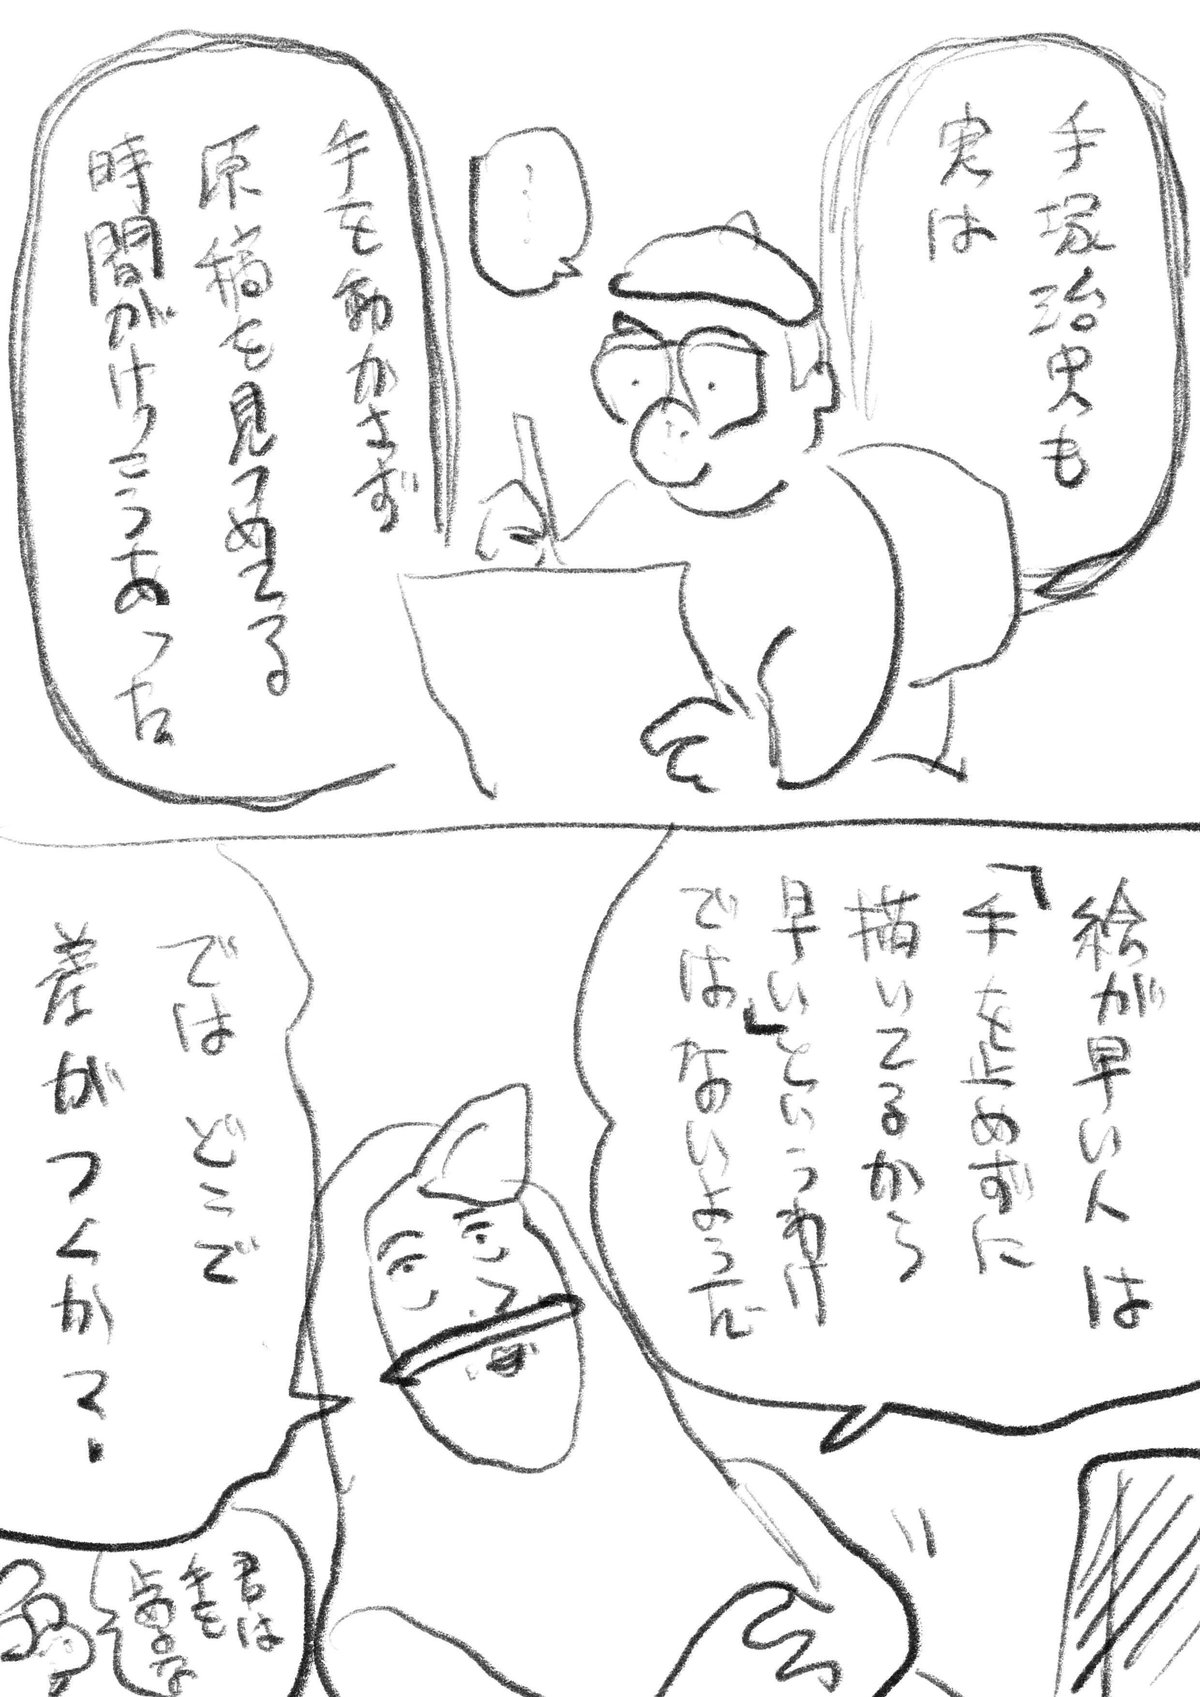 手塚治虫も
実は
……
手を動かさず
原稿を見つめてる
時間がけっこうあった
絵が早い人は
「手を止めずに
描いてるから
早い」というわけ
ではないようだ
では どこで
差がつくかて、
君は
手も
止めるな